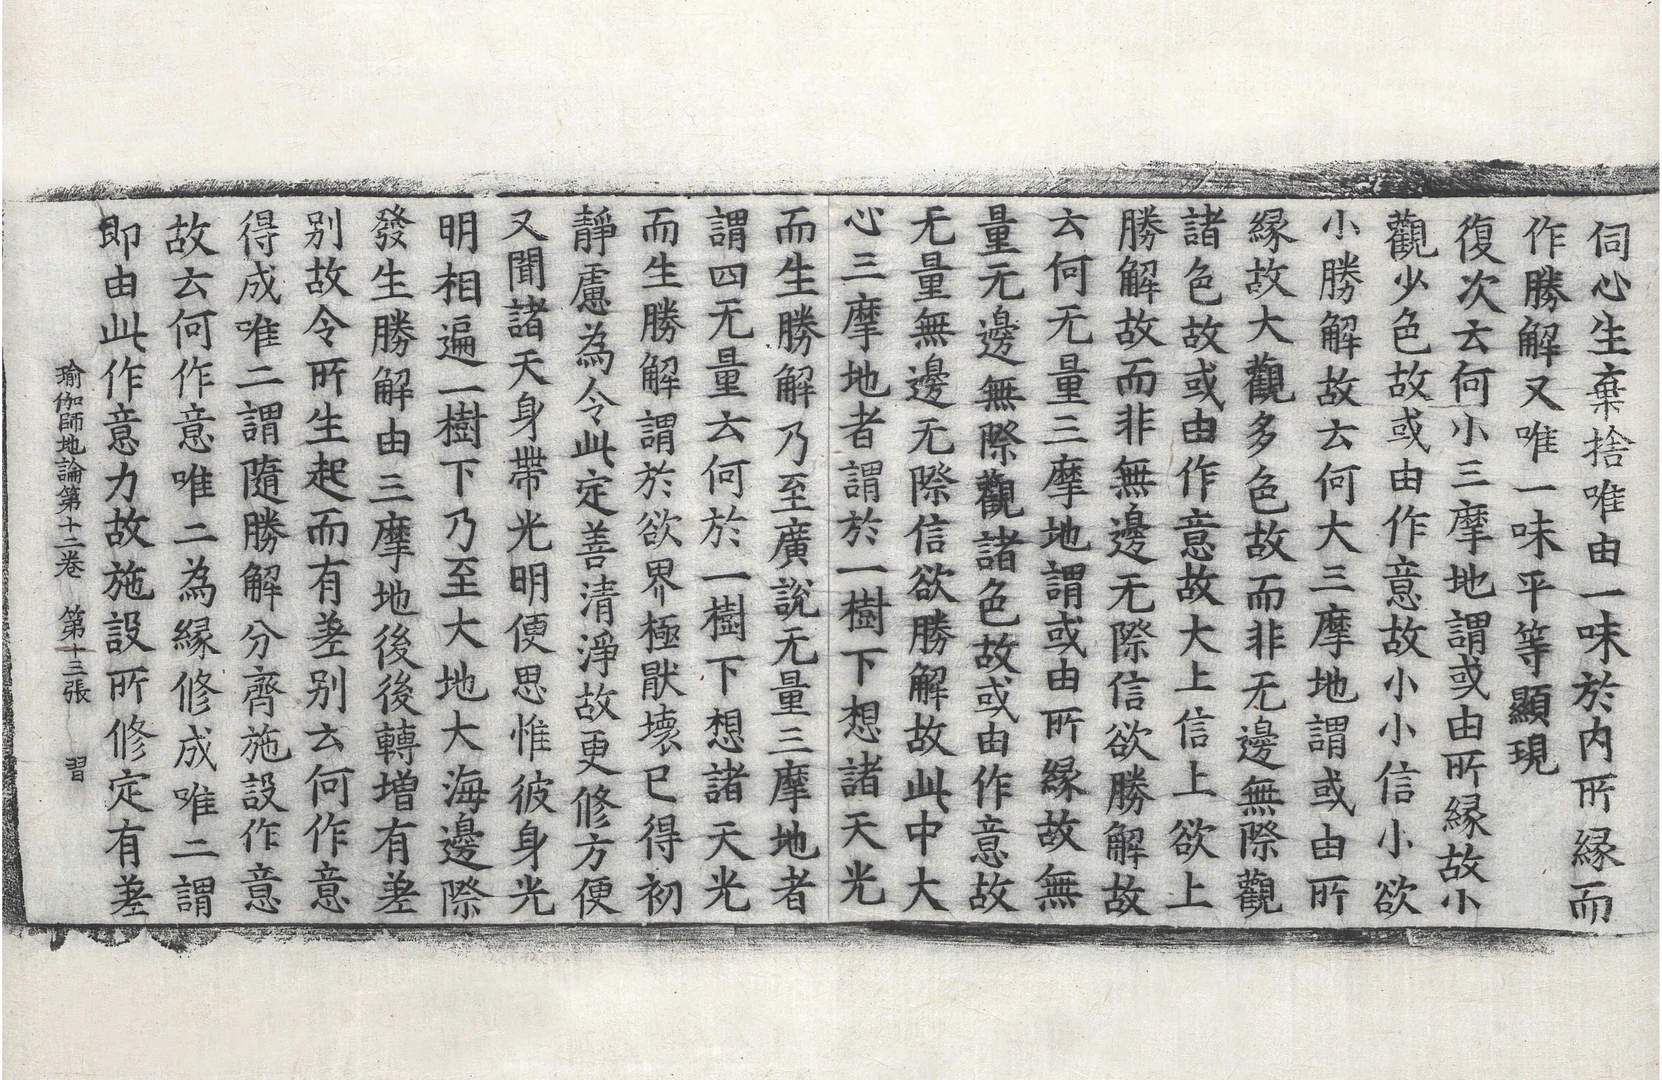 伺心生棄捨唯由一味於内所縁而
作勝解又唯一味平等顯現
復次云何小三摩地謂或由所縁故小
觀少色故或由作意故小小信小欲
小勝解故云何大三摩地謂或由所
縁故大觀多色故而非无邊無際觀
諸色故或由作意故大上信上欲上
勝解故而非無邊无際信欲勝解故
云何无量三摩地謂或由所縁故無
量无邊無際觀諸色故或由作意故
无量無邊无際信欲勝解故此中大
心三摩地者謂於一樹下想諸天光
而生勝解乃至廣說无量三摩地者
謂四无量云何於一樹下想諸天光
而生勝解謂於欲界極猒壞已得初
靜慮為令此定善清淨故更修方便
又聞諸天身帶光明便思惟彼身光
明相遍一樹下乃至大地大海邊際
發生勝解由三摩地後後轉增有差
别故令所生起而有差别云何作意
得成唯二謂隨勝解分齊施設作意
故云何作意唯二為縁修成唯二謂
即由此作意力故施設所修定有差
瑜伽師地論第十二卷　第十三張　習